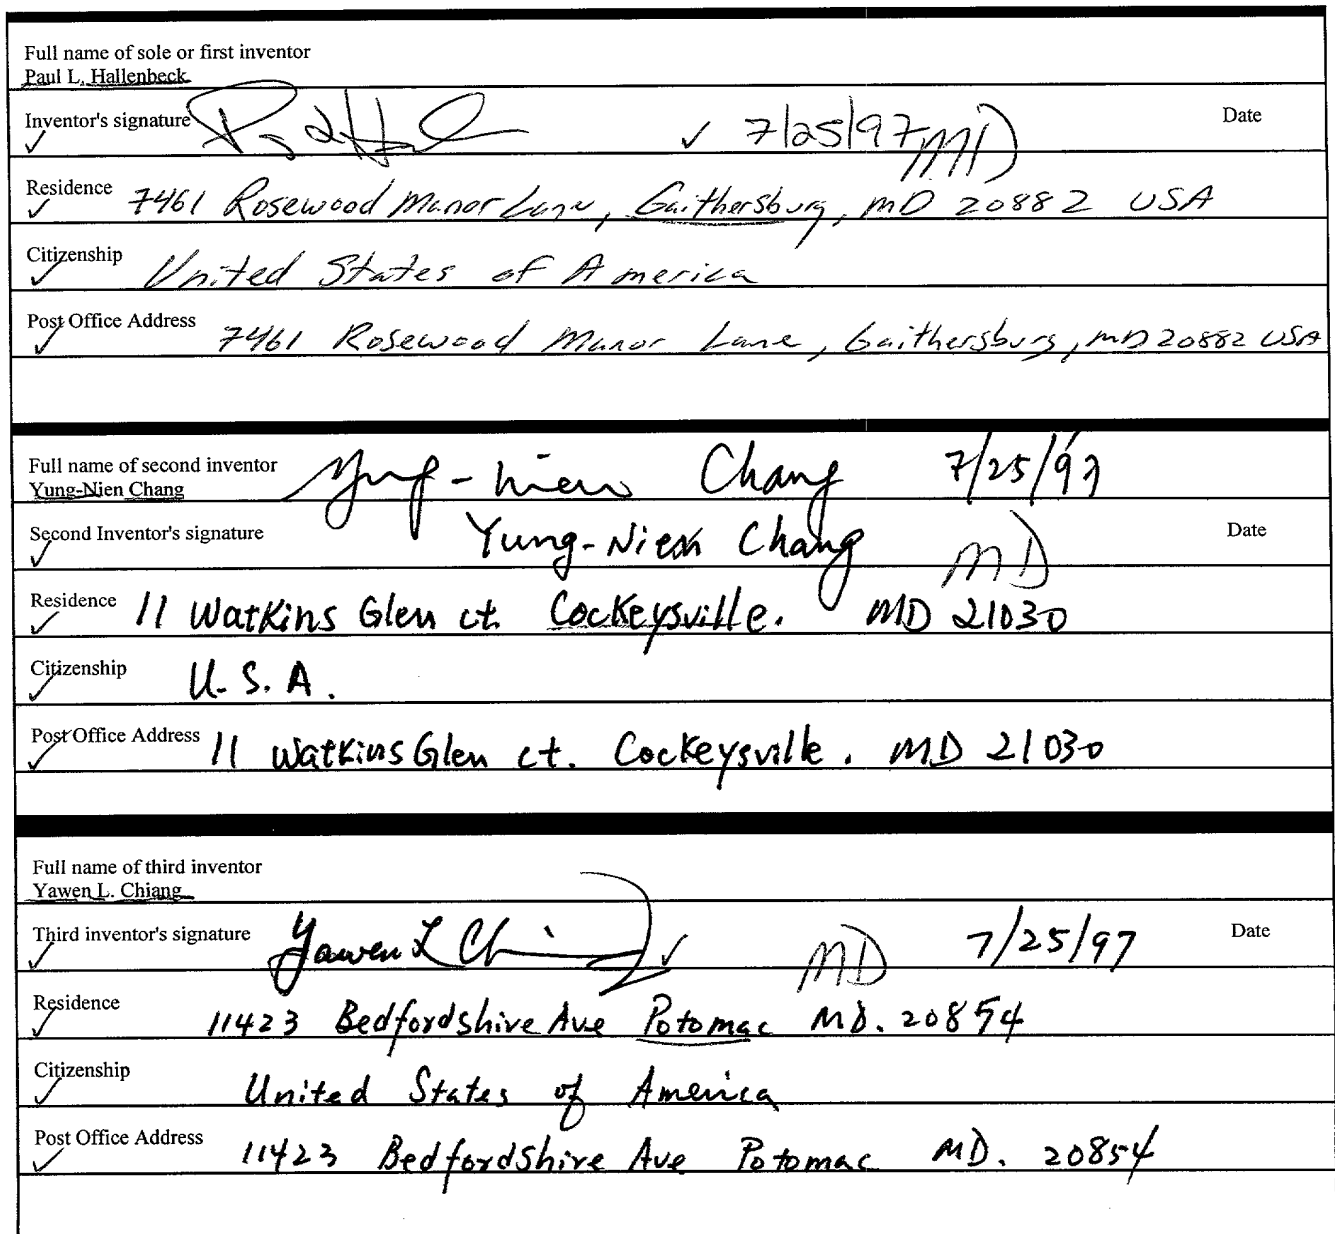 Full name of sole or first inventor
Paul L. Hallenbeck
Inventor's signature ✓ 7/25/97 MD Date
Residence 7461 Rosewood Manor Lane, Gaithersburg, MD 20882 USA
Citizenship United States of America
Post Office Address 7461 Rosewood Manor Lane, Gaithersburg, MD 20882 USA
Full name of second inventor Yung-Nien Chang 7/25/97
Yung-Nien Chang
Second Inventor's signature Yung-Nien Chang MD Date
Residence 11 Watkins Glen ct. Cockeysville. MD 21030
Citizenship U.S.A.
Post Office Address 11 Watkins Glen ct. Cockeysville. MD 21030
Full name of third inventor
Yawen L. Chiang
Third inventor's signature Yawen L Chiang ✓ MD 7/25/97 Date
Residence 11423 Bedfordshire Ave Potomac MD. 20854
Citizenship United States of America
Post Office Address 11423 Bedfordshire Ave Potomac MD. 20854